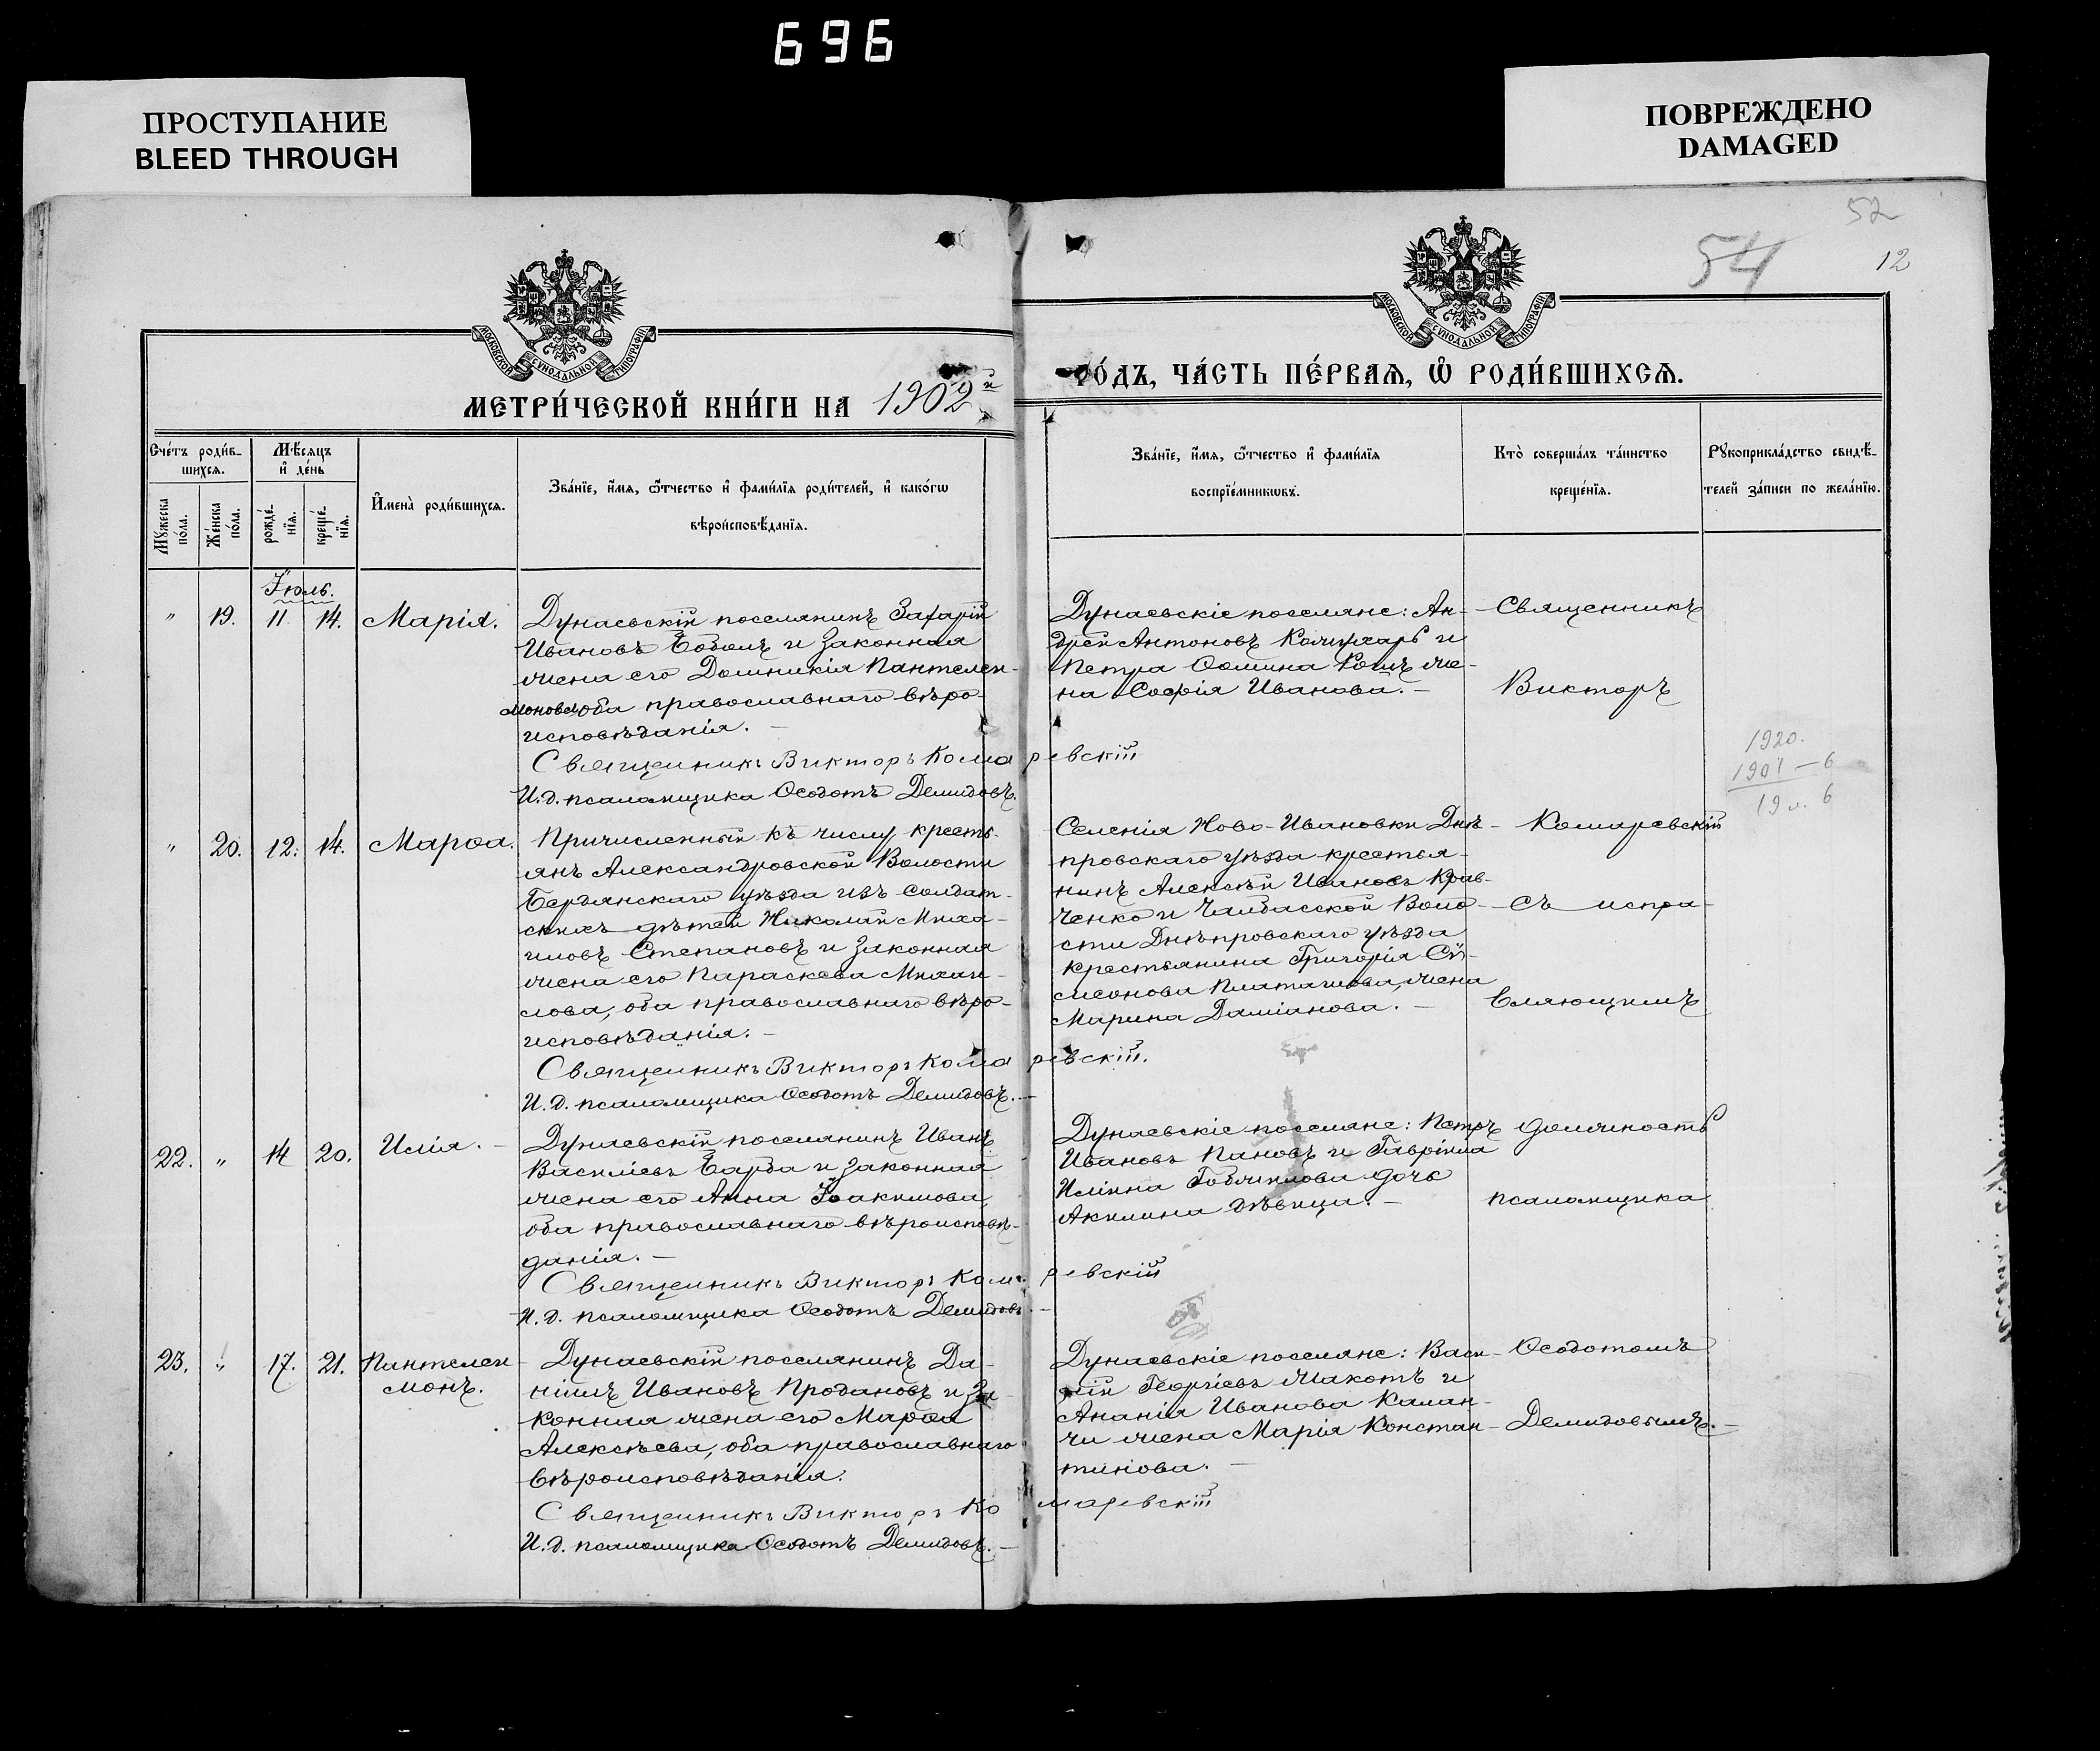 696
ПРОСТУПАНИЕ
BLEED THROUGH
ПОВРЕЖДЕНО
DAMAGED
52
54
12
МОСКОВСКОЙ СѴНОДАЛЬНОЙ ТИПОГРАФІИ
МОСКОВСКОЙ СѴНОДАЛЬНОЙ ТИПОГРАФІИ
МЕТРИ́ЧЕСКОЙ КНИ́ГИ НА 1902й
ГО́ДЪ, ЧА́СТЬ ПЕ́РВАѦ, Ѽ РОДИ́ВШИХСѦ.
Сче́тъ роди́в-
шихсѧ.
Мѣ́сѧцъ
и҆ де́нь
Мꙋ́жеска
по́ла.
Же́нска
по́ла.
рожде́-
нїѧ.
креще́-
нїѧ.
И҆мена̀ роди́вшихсѧ.
Зва́нїе, и҆́мѧ, ѻ҆́тчество и҆ фами́лїѧ роди́телей, и҆ како́гѡ
вѣроисповѣ́данїѧ.
Зва́нїе, и҆́мѧ, ѻ҆́тчество и҆ фами́лїѧ
воспрїе́мникѡвъ.
Кто̀ соверша́лъ та́инство
креще́нїѧ.
Рꙋкоприкла́дство свидѣ́-
телей за́писи по жела́нїю.
Іюль.
" 19. 11 14. Марія.
Дунаевскій поселянинъ Захарій
Ивановъ Бобомъ и законная
жена его Домникія Пантелеи-
монова, оба православнаго вѣро-
исповѣданія. —
Священникъ Викторъ Комаревскій
И.д. псаломщика Ѳеодотъ Демидовъ.
Дунаевскіе поселяне: Ан-
дрей Антоновъ и
Петра Ѳомина же-
на Софія Иванова. —
Священникъ
Викторъ
1920.
1901 — 6
19 л. 6
" 20. 12. 14. Марѳа.
Причисленный къ числу кресть-
янъ Александровской Волости
Бердянскаго уѣзда изъ солдат-
скихъ дѣтей Николай Миха-
иловъ Степановъ и законная
жена его Параскева Михаи-
лова, оба православнаго вѣро-
исповѣданія. —
Священникъ Викторъ Комаревскій.
И.д. псаломщика Ѳеодотъ Демидовъ. —
Селенія Ново-Ивановки Днѣ-
провскаго уѣзда крестья-
нинъ Алексѣй Ивановъ Крав-
ченко и Чалбасской Воло-
сти Днѣпровскаго уѣзда
крестьянина Григорія Си-
меонова жена
Марина Даміанова. —
Комаревскій
съ испра-
вляющимъ
22. " 14 20. Илія. —
Дунаевскій поселянинъ Иванъ
Василіевъ Барба и законная
жена его Анна Іоакимова,
оба православнаго вѣроисповѣ-
данія. —
Священникъ Викторъ Комаревскій
И.д. псаломщика Ѳеодотъ Демидовъ. —
Дунаевскіе поселяне: Петръ
Ивановъ Пановъ и Гавріила
Иліина дочь
Акилина дѣвица. —
должность
псаломщика
23. " 17. 21. Пантелеи-
монъ.
Дунаевскій поселянинъ Да-
ніилъ Ивановъ Продановъ и за-
конная жена его Марѳа
Алексѣева, оба православнаго
вѣроисповѣданія.
Священникъ Викторъ Комаревскій
И.д. псаломщика Ѳеодотъ Демидовъ. —
Дунаевскіе поселяне: Васи-
лій Георгіевъ Макотъ и
Ананія Иванова Калан-
чи жена Марія Констан-
тинова. —
Ѳеодотомъ
Демидовымъ. —